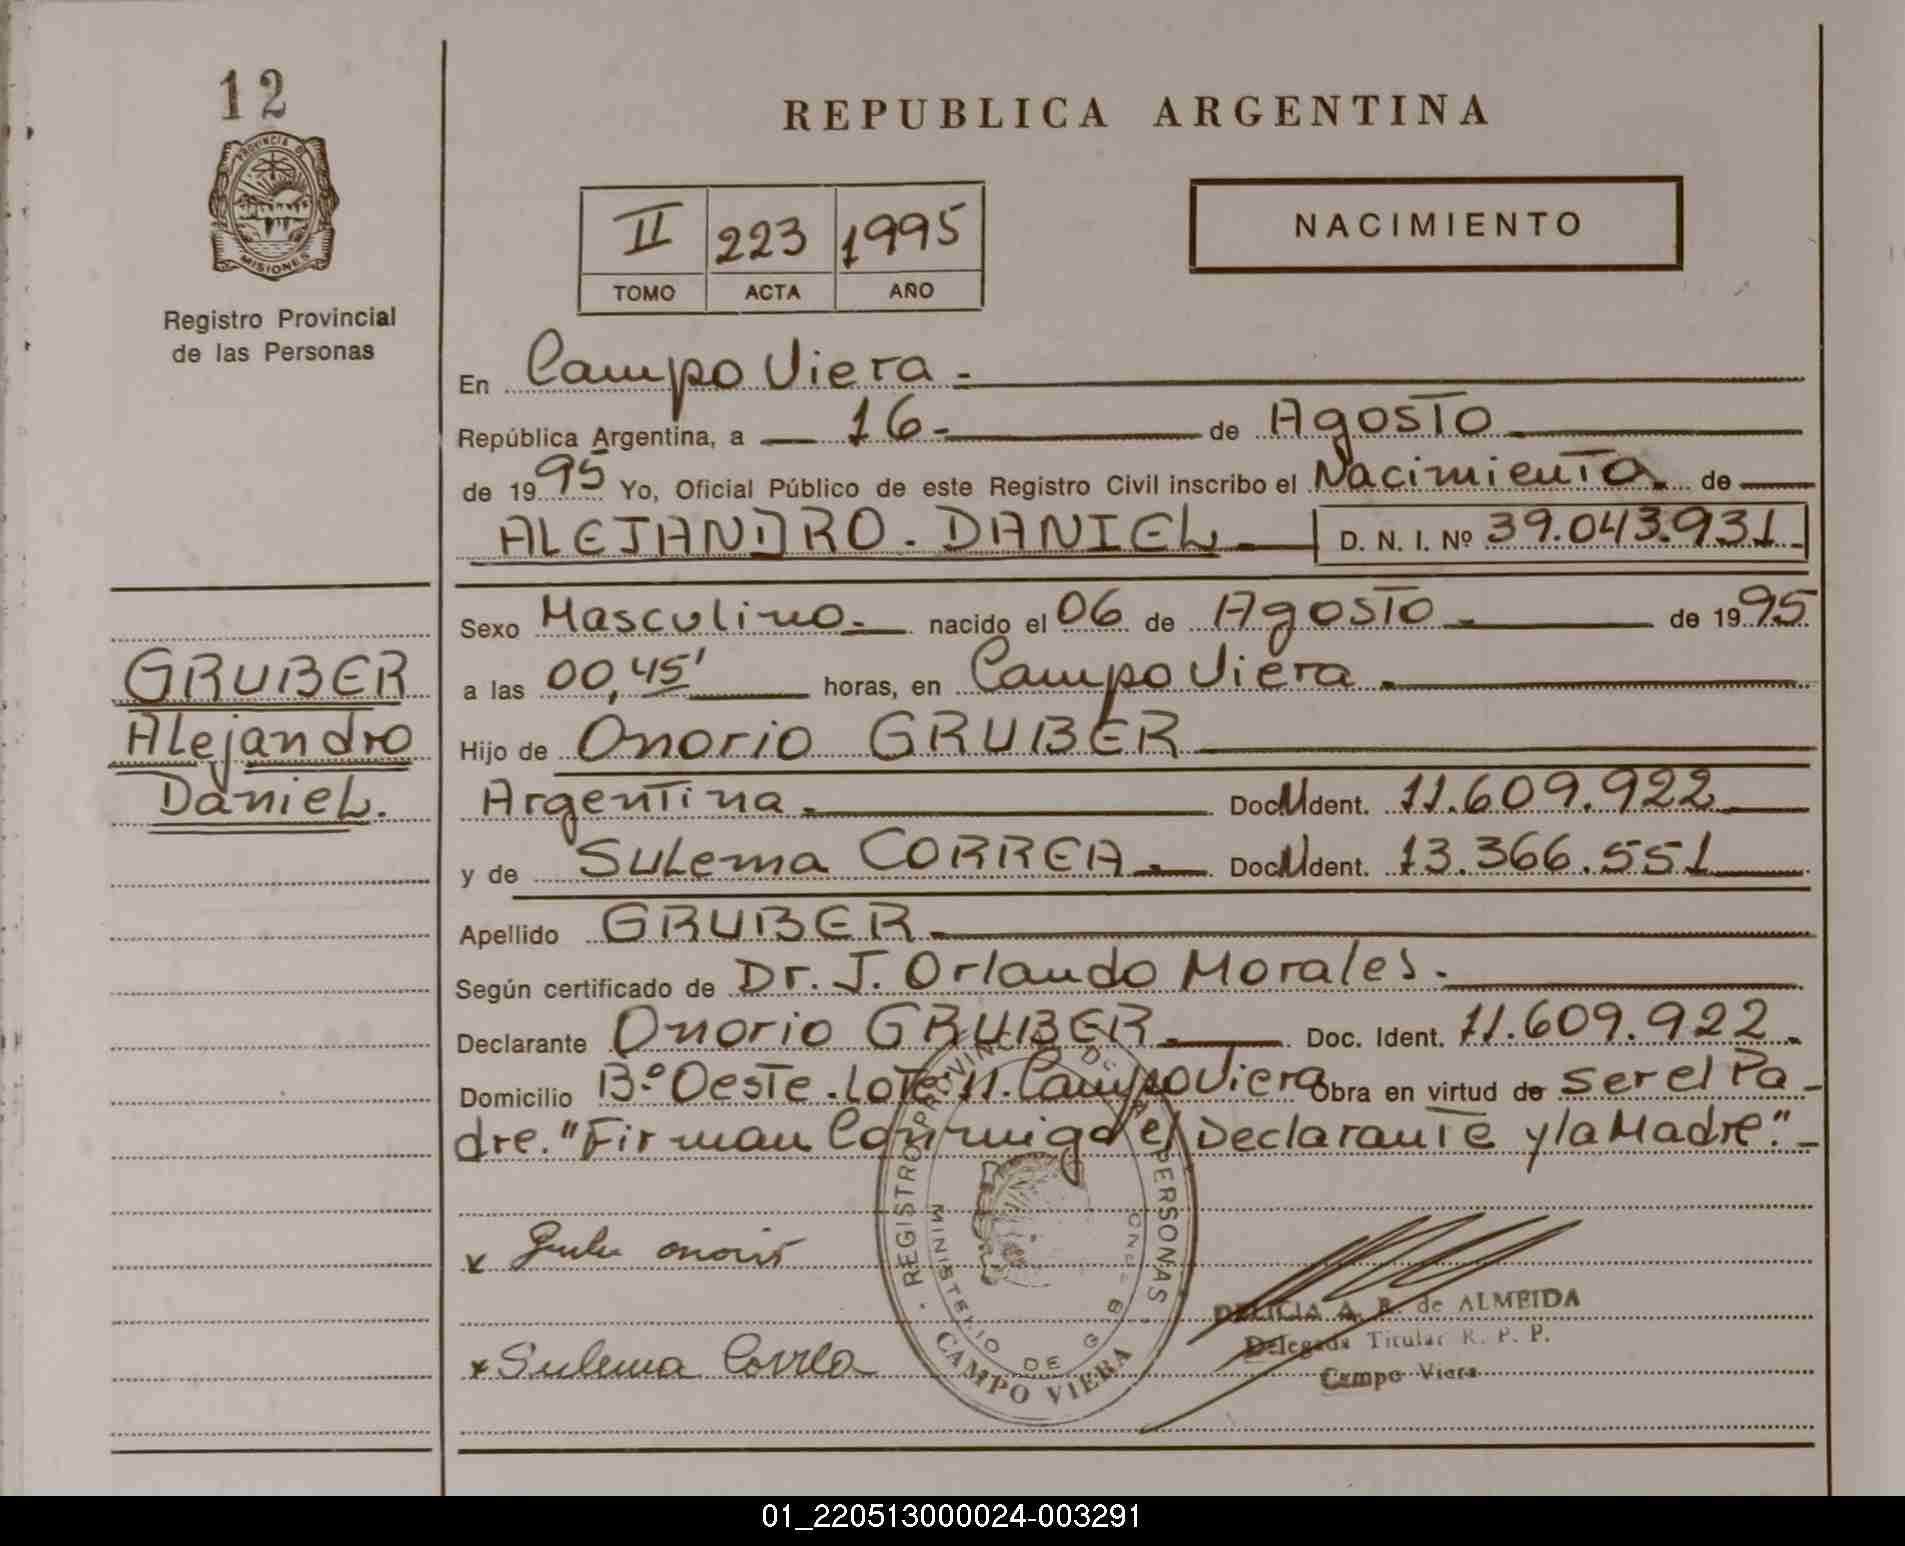 12
PROVINCIA D
MISIONES
Registro Provincial
de las Personas
REPUBLICA ARGENTINA
II 223 1995
TOMO ACTA AÑO
NACIMIENTO
En Campo Viera.-
República Argentina, a 16.- de Agosto
de 1995 Yo, Oficial Público de este Registro Civil inscribo el Nacimiento. de
ALEJANDRO. DANIEL.- D. N. I. Nº 39.043.931.-
Sexo Masculino.- nacido el 06 de Agosto.- de 1995.
a las 00,45' horas, en Campo Viera.-
GRUBER
Alejandro
Daniel.
Hijo de Onorio GRUBER
Argentina.- Doc. Ident. 11.609.922
y de Sulema CORREA.- Doc. Ident. 13.366.551
Apellido GRUBER.-
Según certificado de Dr. J. Orlando Morales.-
Declarante Onorio GRUBER.- Doc. Ident. 11.609.922.-
Domicilio Bº Oeste. Lote 11. Campo Viera Obra en virtud de ser el Pa-
dre. "Firman Conmigo el Declarante y la Madre".-
REGISTRO PROVINCIAL DE LAS PERSONAS
MINISTERIO DE GOB
CAMPO VIERA
x Onorio
DELICIA A. R. de ALMEIDA
Delegada Titular R. P. P.
x Sulema Correa
Campo Viera
01_220513000024-003291